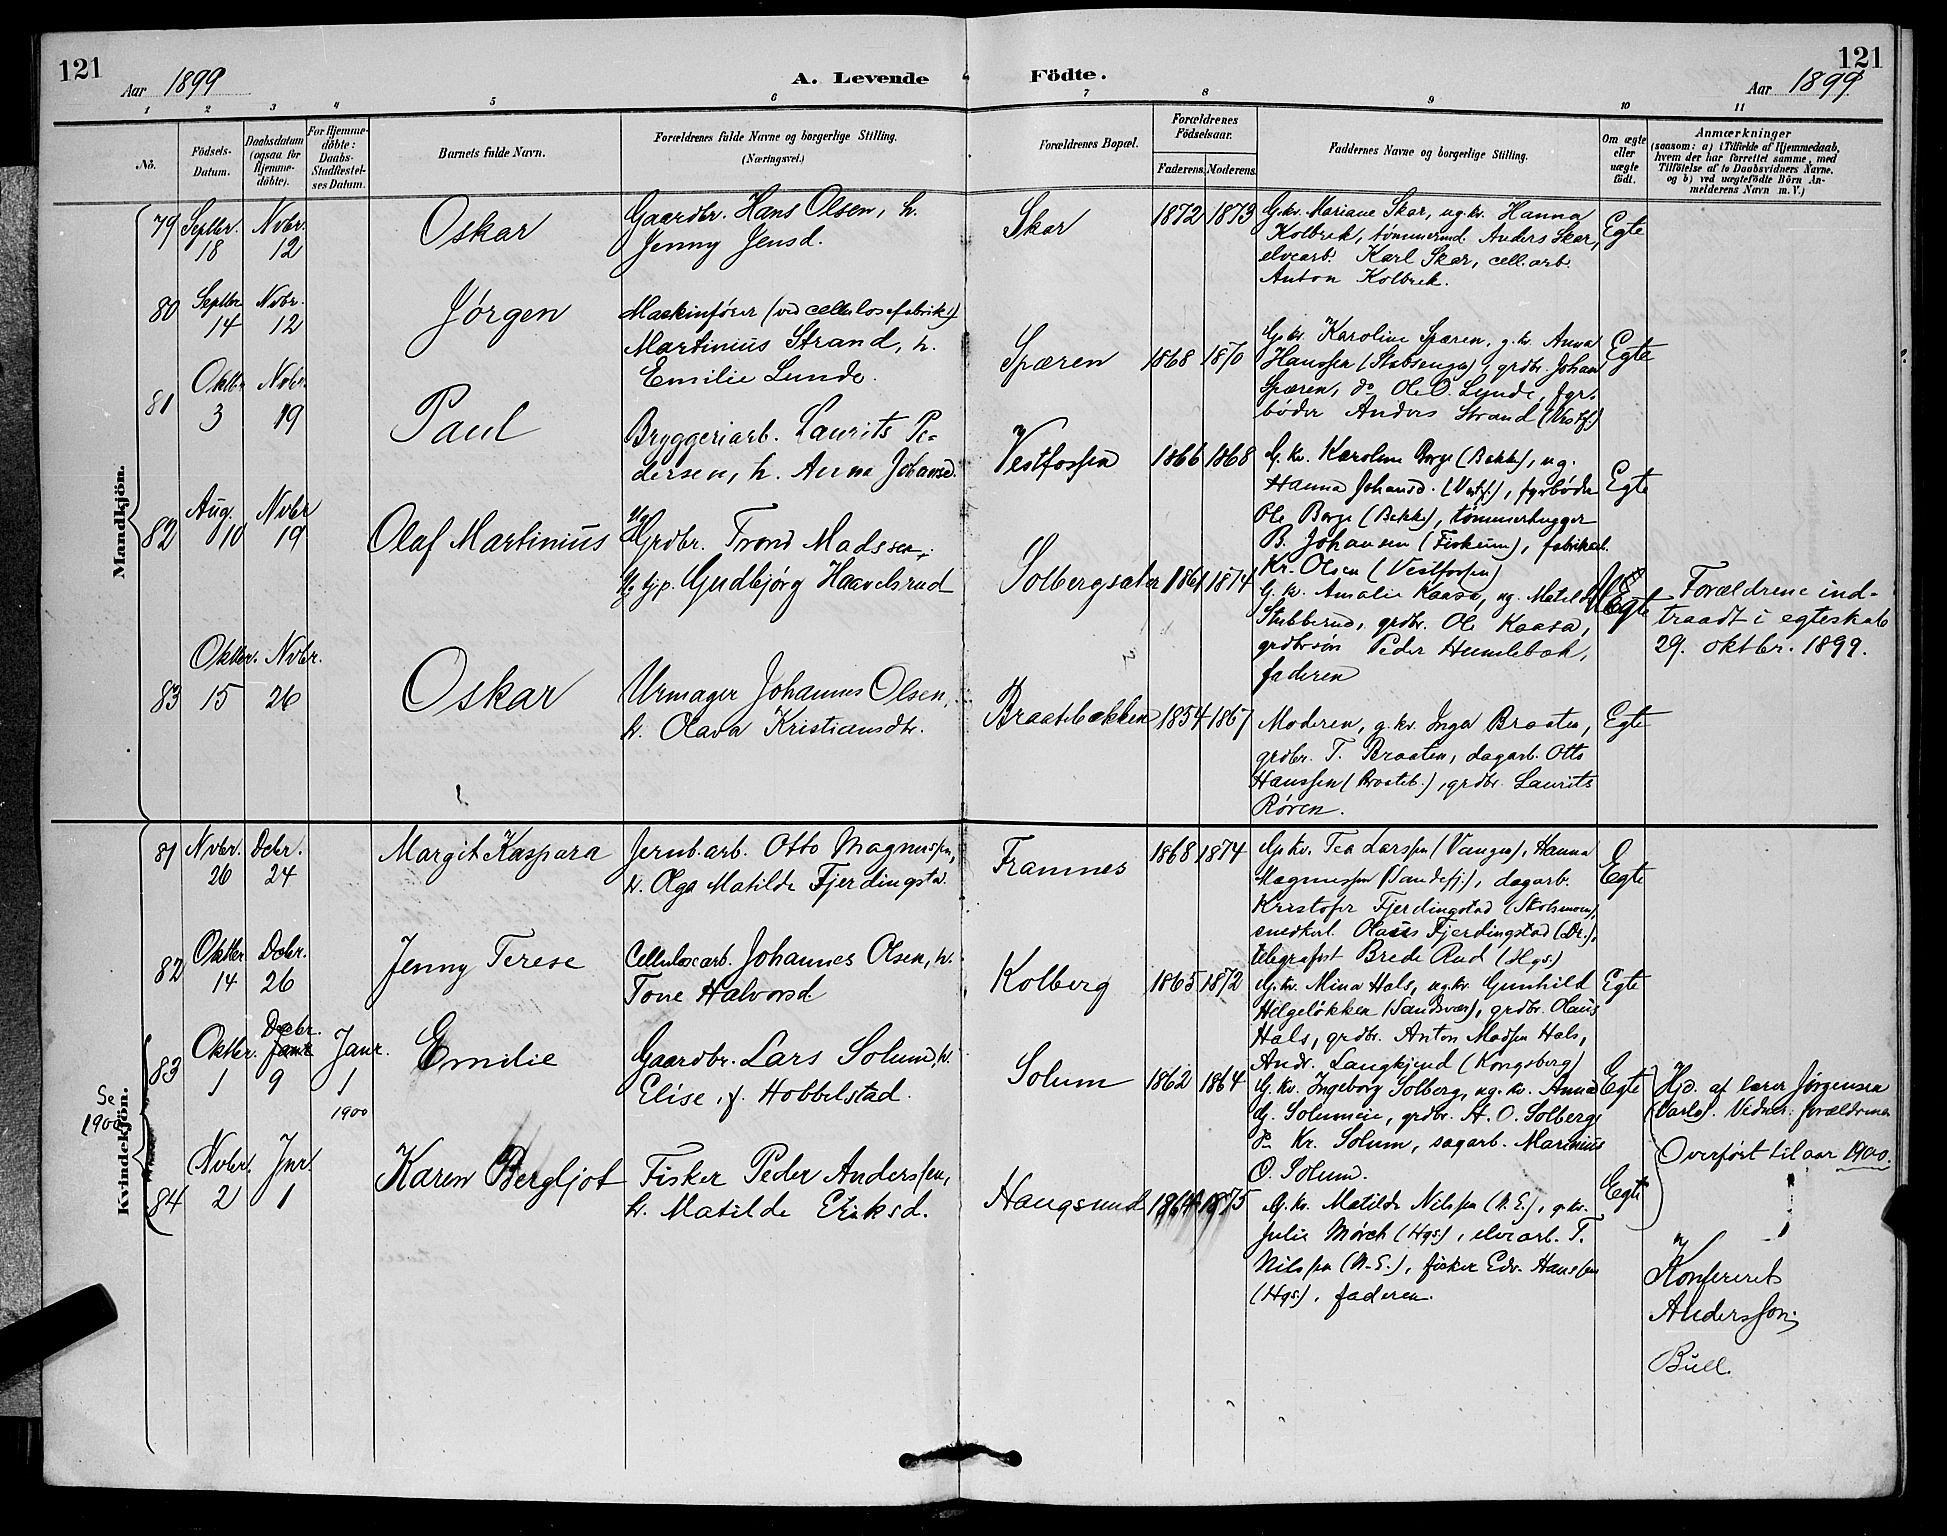 121
Aar 1899
A. Levende Födte.
121
Aar 1899
1 2 3 4 5 6 7 8 9 10 11
No.
Födsels-
Datum.
Daabsdatum
(ogsaa for
Hjemme-
döbte).
For Hjemme-
döbte:
Daabs-
Stadfestel-
ses Datum.
Barnets fulde Navn.
Forældrenes fulde Navne og borgerlige Stilling.
(Næringsvei.)
Forældrenes Bopæl.
Forældrenes
Födselsaar.
Faderens. Moderens.
Faddernes Navne og borgerlige Stilling.
Om ægte
eller
uægte
födt.
Anmærkninger
(saasom: a) i Tilfælde af Hjemmedaab,
hvem der har forrettet samme, med
Tilföielse af to Daabsvidners Navne.
og b) ved uægtefödte Börn An-
melderens Navn m. V.)
Mandkjön.
79 Septbr. 18 Novbr. 12
Oskar
Gaardbr. Hans Olsen, h.
Jenny Jensd.
Skar
1872 1873
G.kv. Mariane Skar, ug.kv. Hanna
Kolbrek, tømmermd. Anders Skar,
elvearb. Karl Skar, cell.arb.
Anton Kolbrek.
Egte
80 Septbr. 14 Novbr. 12
Jørgen
Maskinfører (ved cellulosefabrik)
Martinius Strand, h.
Emilie Lunde.
Spæren
1868 1870
G.kv. Karoline Spæren, g.kv. Anna
Hanssen (Stubsengen), grdbr. Johan
Spæren, do Ole O. Lunde, fyr-
bøder Anders Strand (Vestf.)
Egte
81 Oktbr. 3 Novbr. 19
Paul
Bryggeriarb. Laurits Pe-
dersen, h. Anna Johansd.
Vestfossen
1866 1868
G. kv. Karoline Borge (Bekke), ug.
Hanna Johansd. (Vestf.), fyrbøder
Ole Borge (Bekke), tømmerhugger
B. Johansen (Fiskum), fabrikarb.
Kr. Olsen (Vestfossen)
Egte
82 Aug. 10 Novbr. 19
Olaf Martinius
Ug. Grdbr. Trond Madssen,
Ug. tjp. Gudbjørg Haavelsrud
Solbergsæter
1861 1874
G. kv. Amalie Kaasa, ug. Matilde
Stubberud, grdbr. Ole Kaasa,
grdbrsøn Peder Humlebæk,
faderen
Egte
Forældrene ind-
traadt i egteskab
29. oktbr. 1899.
83 Oktbr. 15 Novbr. 26
Oskar
Urmager Johannes Olsen,
h. Olava Kristiansdtr.
Braatebækken
1854 1867
Moderen, g. kv. Inger Braaten,
grdbr. T. Braaten, dagarb. Otto
Hanssen (Braateb.), grdbr. Laurits
Røren.
Egte
Kvindekjön.
81 Novbr. 26 Decbr. 24
Margit Kaspara
Jernb.arb. Otto Magnussen,
h. Olga Matilde Fjerdingstad.
Framnes
1868 1874
G.kv. Tea Larssen (Vangen), Hanna
Magnussen (Sandefj.), dagarb.
Kristofer Fjerdingstad (Skotsmoen),
snedkerl. Olaus Fjerdingstad (Dr.),
telegrafist Brede Rud (Hgs)
Egte
82 Oktbr. 14 Decbr. 26
Jenny Terese
Cellulosearb. Johannes Olsen, h.
Tone Halvorsd.
Kolberg
1865 1872
G.kv. Mina Hals, ug.kv. Gunhild
Helgeløkken (Sandsvær), grdbr. Olaus
Hals, grdbr. Anton Madsen Hals,
Andr. Langkjend (Kongsberg)
Egte
83 Oktbr. 1 Decbr. 9 Janr. 1 1900
Emilie
Gaardbr. Lars Solum, h.
Elise, f. Hobbelstad.
Solum
1862 1864
G. kv. Ingeborg Solberg, ug. kv. Anna
G. Solumeie, grdbr. H. O. Solberg,
do Kr. Solum, sagarb. Marinius
O. Solum.
Egte
Hjd. af lærer Jørgensen
Varlof. Vidner: forældrene
Se
1900
Overført til aar 1900.
84 Novbr. 2 Jnr. 1
Karen Bergljot
Fisker Peder Anderssen,
h. Matilde Eriksd.
Haugsund
1864 1875
G. kv. Matilde Nilssen (N. E.), g.kv.
Julie Mørch (Hgs), elvearb. T.
Nilssen (N. E.), fisker Edv. Hanssen
(Hgs), faderen.
Egte
Konfereret
Anderssen
Bull.